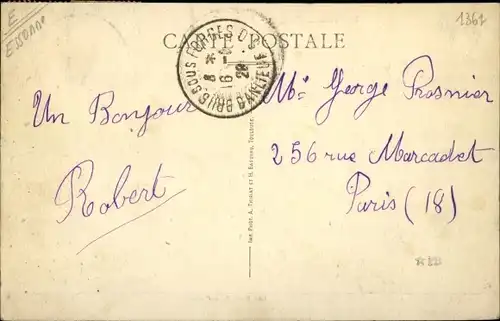 E
ESSONNE
1361
CARTE POSTALE
BRIIS-SOUS-FORGES
8
16
20
Un Bonjour
Robert
Mr George Prosnier
256 rue Marcadet
Paris (18)